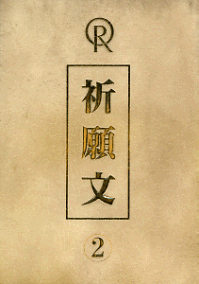 祈
願
文
2